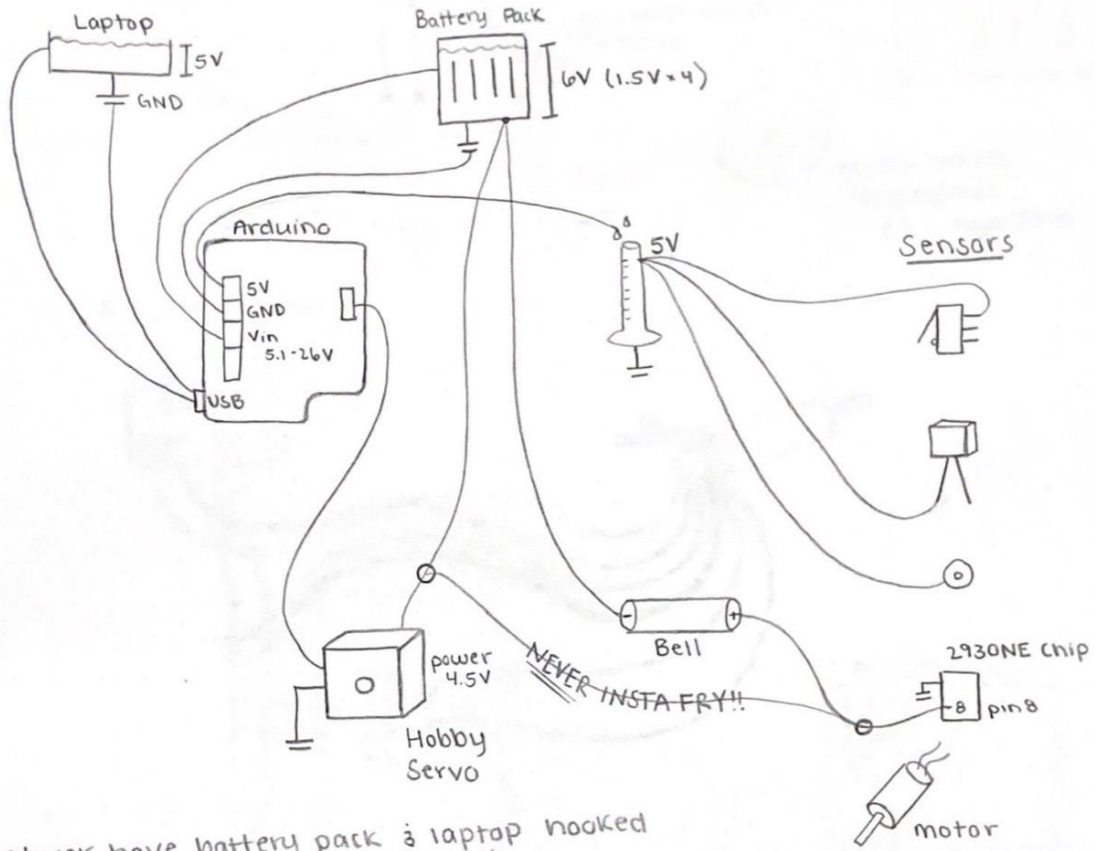 Laptop
5V
GND
Battery Pack
6V (1.5V × 4)
Arduino
5V
GND
Vin
5.1-26V
USB
5V
Sensors
Bell
power
4.5V
NEVER INSTA FRY!!
Hobby
Servo
2930NE Chip
8
pin 8
motor
have battery pack & laptop hooked